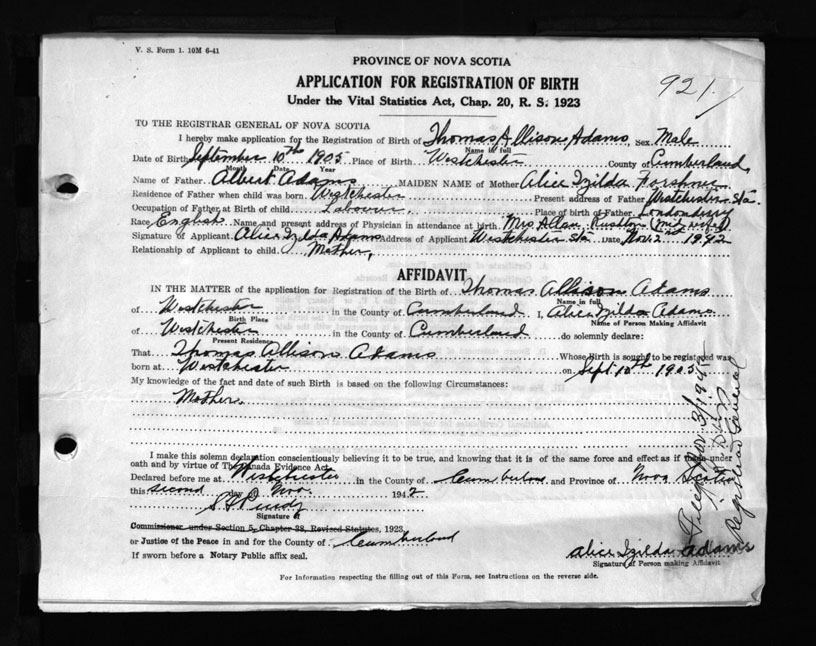 V. S. Form 1. 10M 6-41
PROVINCE OF NOVA SCOTIA
921
APPLICATION FOR REGISTRATION OF BIRTH
Under the Vital Statistics Act, Chap. 20, R. S. 1923
TO THE REGISTRAR GENERAL OF NOVA SCOTIA
I hereby make application for the Registration of Birth of Thomas Allison Adams, Sex Male
Name in full
Date of Birth September 10th 1905 Place of Birth Westchester County of Cumberland
Month Date Year
Name of Father Albert Adams MAIDEN NAME of Mother Alice Izilda
Residence of Father when child was born Westchester Present address of Father Westchester Sta.
Occupation of Father at Birth of child Labourer. Place of birth of Father Londonderry
Race English Name and present address of Physician in attendance at birth. Mrs Allan Rushton (midwife)
Signature of Applicant Alice Izilda Adams Address of Applicant Westchester Sta Date Nov. 2nd 1942
Relationship of Applicant to child Mother,
AFFIDAVIT
IN THE MATTER of the application for Registration of the Birth of Thomas Allison Adams
Name in full
of Westchester in the County of Cumberland I, Alice Izilda Adams
Birth Place Name of Person Making Affidavit
of Westchester in the County of Cumberland do solemnly declare:
Present Residence
That Thomas Allison Adams Whose Birth is sought to be registered was
born at Westchester on Sept. 10th 1905
My knowledge of the fact and date of such Birth is based on the following Circumstances:
Mother.
I make this solemn declaration conscientiously believing it to be true, and knowing that it is of the same force and effect as if made under
oath and by virtue of The Canada Evidence Act.
Declared before me at Westchester in the County of Cumberland and Province of Nova Scotia
this second day of Nov. 1942
Signature of
Commissioner under Section 5, Chapter 38, Revised Statutes, 1923,
or Justice of the Peace in and for the County of Cumberland
If sworn before a Notary Public affix seal.
Alice Izilda Adams
Signature of Person making Affidavit
For Information respecting the filling out of this Form, see Instructions on the reverse side.
Registrar General